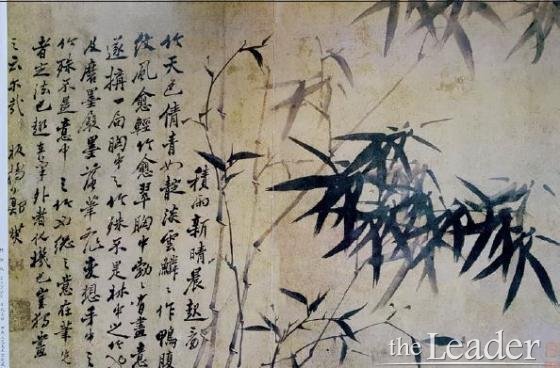 積雨新晴晨起
竹天色倩青如靛淡雲鱗鱗作鴨腹
紋風愈輕竹愈翠胸中勃勃有畫意
遂搆一局胸中之竹殊不是林中之竹也
及磨墨展墨落筆又變想手中之
竹殊不是意中之竹也總之意在筆先
者定法也趣在筆外者化機也獨畫
之云尔哉 板橋鄭燮
the Leader